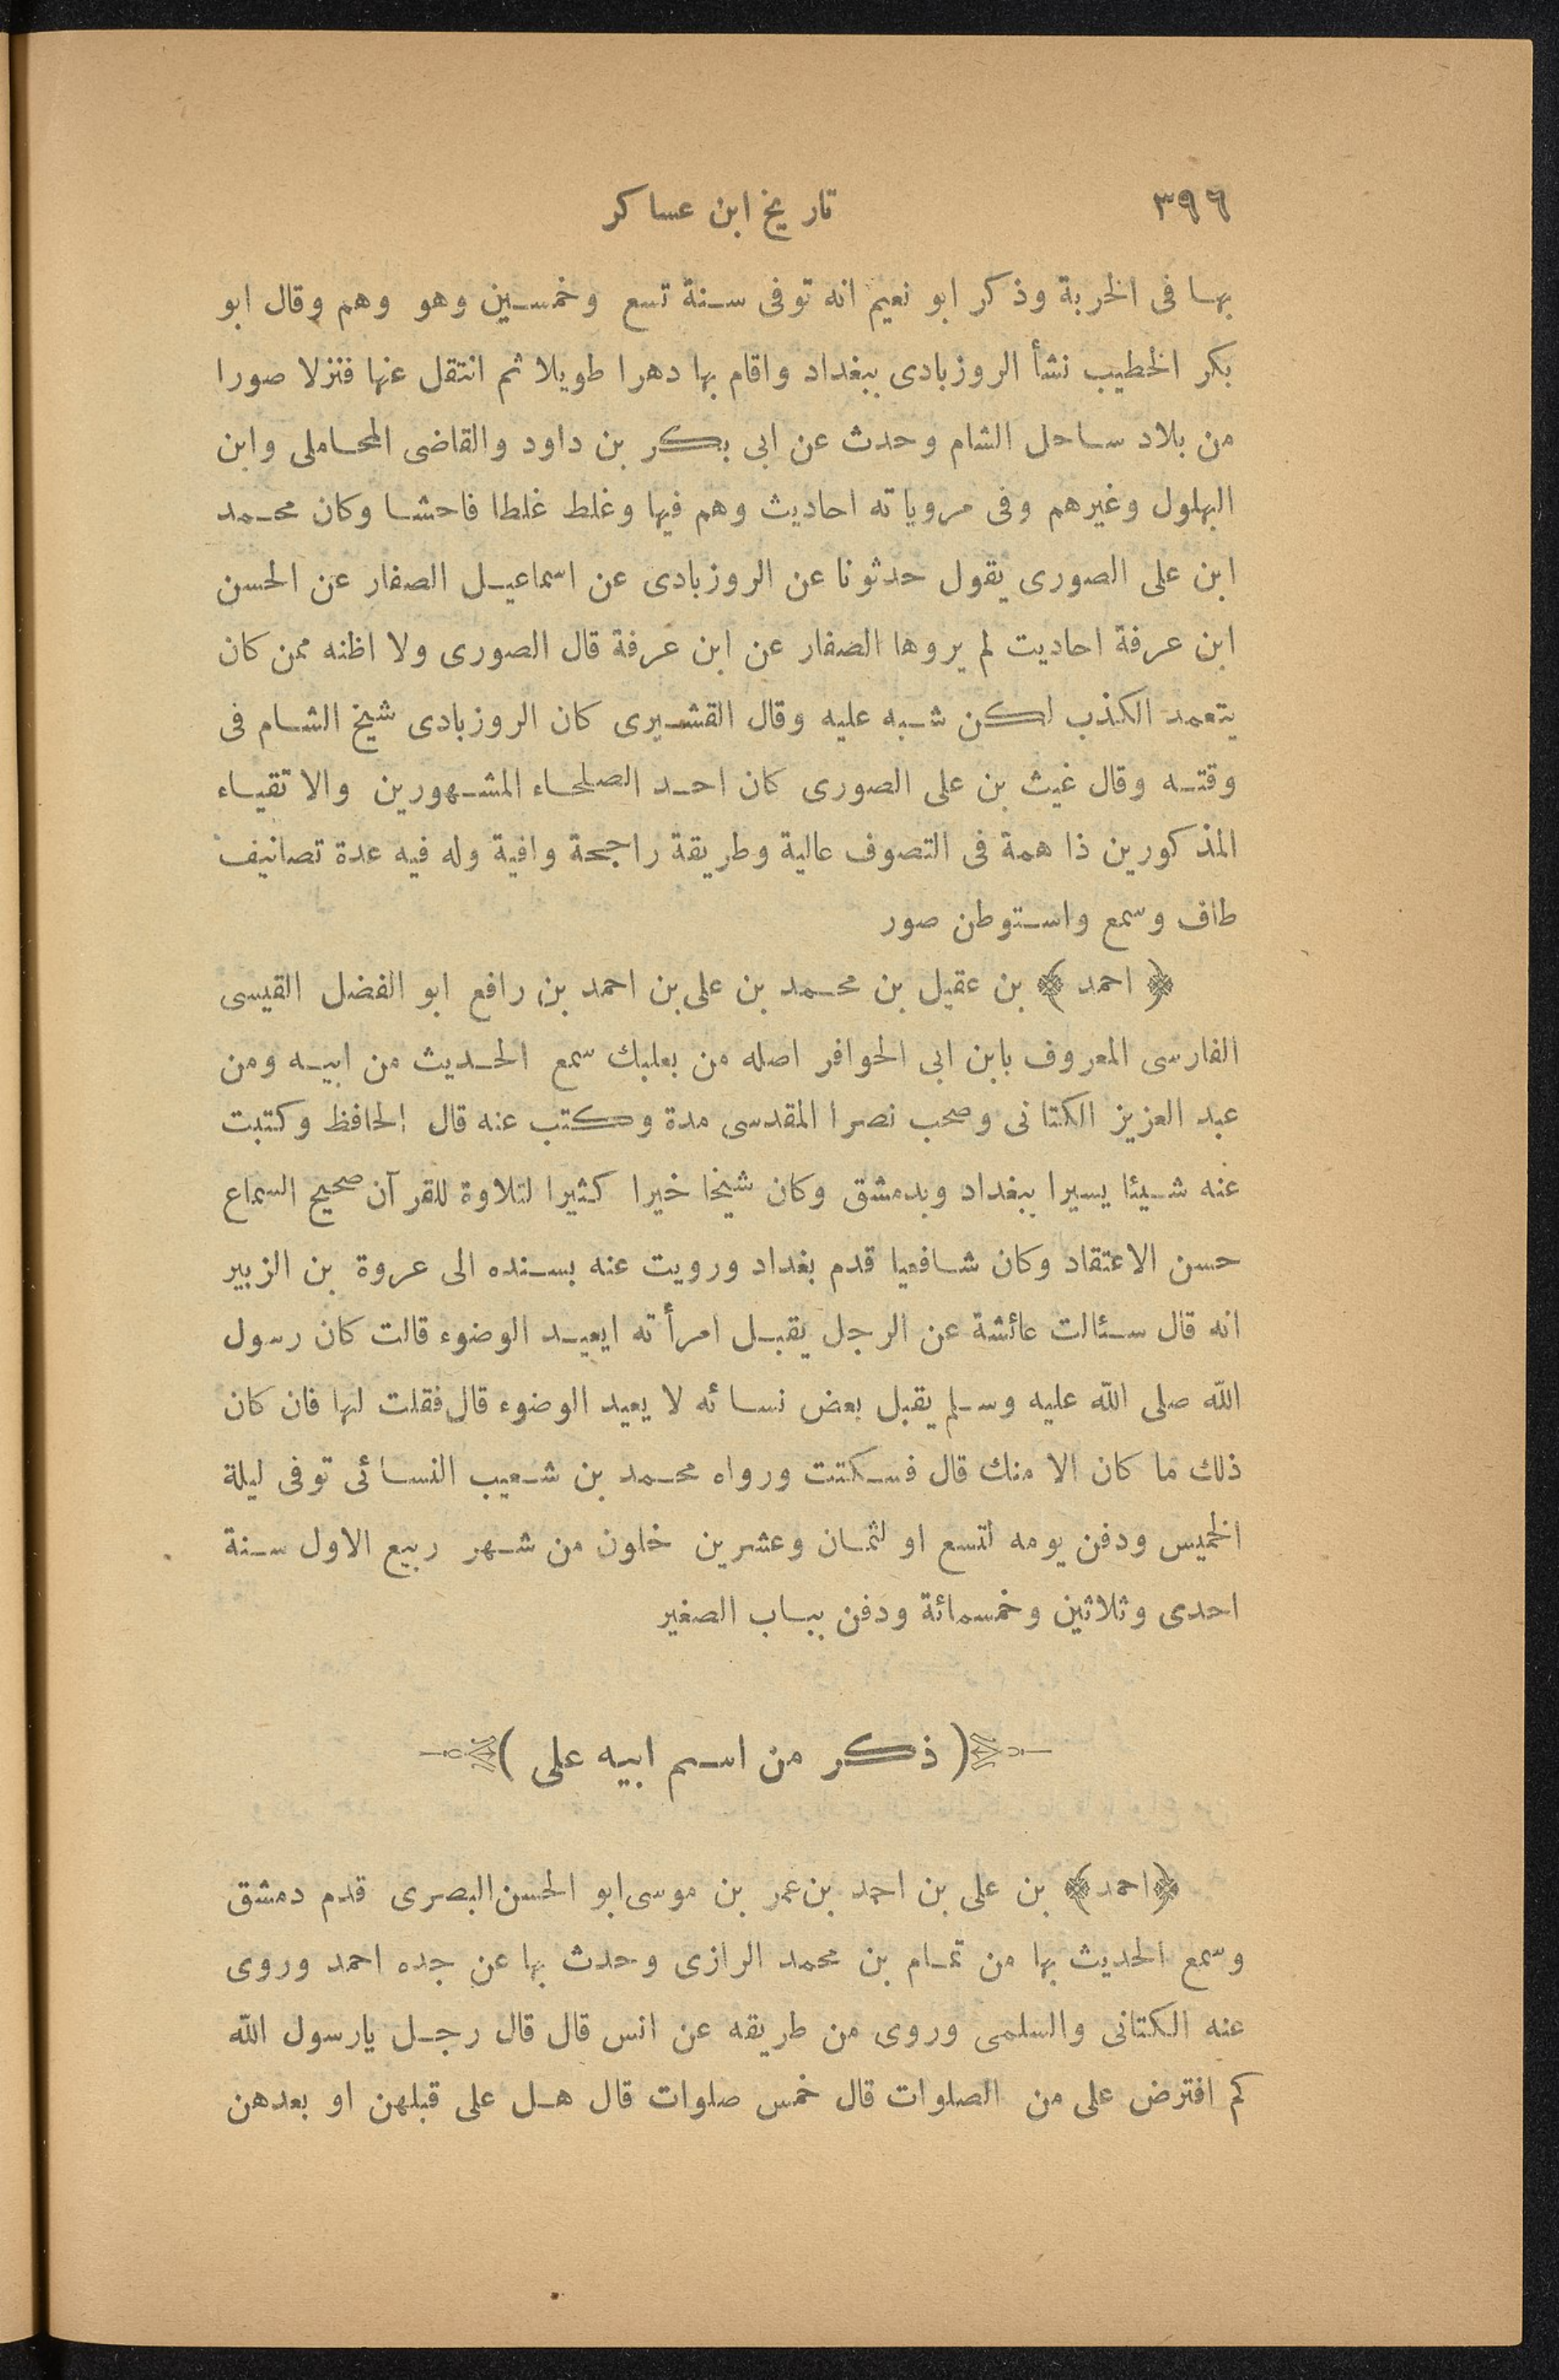 ٣٩٦
تاريخ ابن عساكر
بها فى الخربة وذكر ابو نعيم انه توفى سنة تسع وخمسين وهو وهم وقال ابو
بكر الخطيب نشأ الروزبادى ببغداد واقام بها دهرا طويلا ثم انتقل عنها فنزلا صورا
من بلاد ساحل الشام وحدث عن ابى بكر بن داود والقاضى المحاملى وابن
البهلول وغيرهم وفى مروياته احاديث وهم فيها وغلط غلطا فاحشا وكان محمد
ابن على الصورى يقول حدثونا عن الروزبادى عن اسماعيل الصفار عن الحسن
ابن عرفة احاديت لم يروها الصفار عن ابن عرفة قال الصورى ولا اظنه ممن كان
يتعمد الكذب لكن شبه عليه وقال القشيرى كان الروزبادى شيخ الشام فى
وقته وقال غيث بن على الصورى كان احد الصلحاء المشهورين والاتقياء
المذكورين ذا همة فى التصوف عالية وطريقة راجحة وافية وله فيه عدة تصانيف
طاف وسمع واستوطن صور
﴿ احمد ﴾ بن عقيل بن محمد بن على بن احمد بن رافع ابو الفضل القيسى
الفارسى المعروف بابن ابى الحوافر اصله من بعلبك سمع الحديث من ابيه ومن
عبد العزيز الكتانى وصحب نصرا المقدسى مدة وكتب عنه قال الحافظ وكتبت
عنه شيئا يسيرا ببغداد وبدمشق وكان شيخا خيرا كثيرا لتلاوة للقرآن صحيح السماع
حسن الاعتقاد وكان شافعيا قدم بغداد ورويت عنه بسنده الى عروة بن الزبير
انه قال سئالت عائشة عن الرجل يقبل امرأته ايعيد الوضوء قالت كان رسول
الله صلى الله عليه وسلم يقبل بعض نسائه لا يعيد الوضوء قال فقلت لها فان كان
ذلك ما كان الا منك قال فسكتت ورواه محمد بن شعيب النسائى توفى ليلة
الخميس ودفن يومه لتسع او لثمان وعشرين خلون من شهر ربيع الاول سنة
احدى وثلاثين وخمسمائة ودفن بباب الصغير
( ذكر من اسم ابيه على )
﴿احمد﴾ بن على بن احمد بن عمر بن موسى ابو الحسن البصرى قدم دمشق
وسمع الحديث بها من تمام بن محمد الرازى وحدث بها عن جده احمد وروى
عنه الكتانى والسلمى وروى من طريقه عن انس قال قال رجل يارسول الله
كم افترض على من الصلوات قال خمس صلوات قال هل على قبلهن او بعدهن